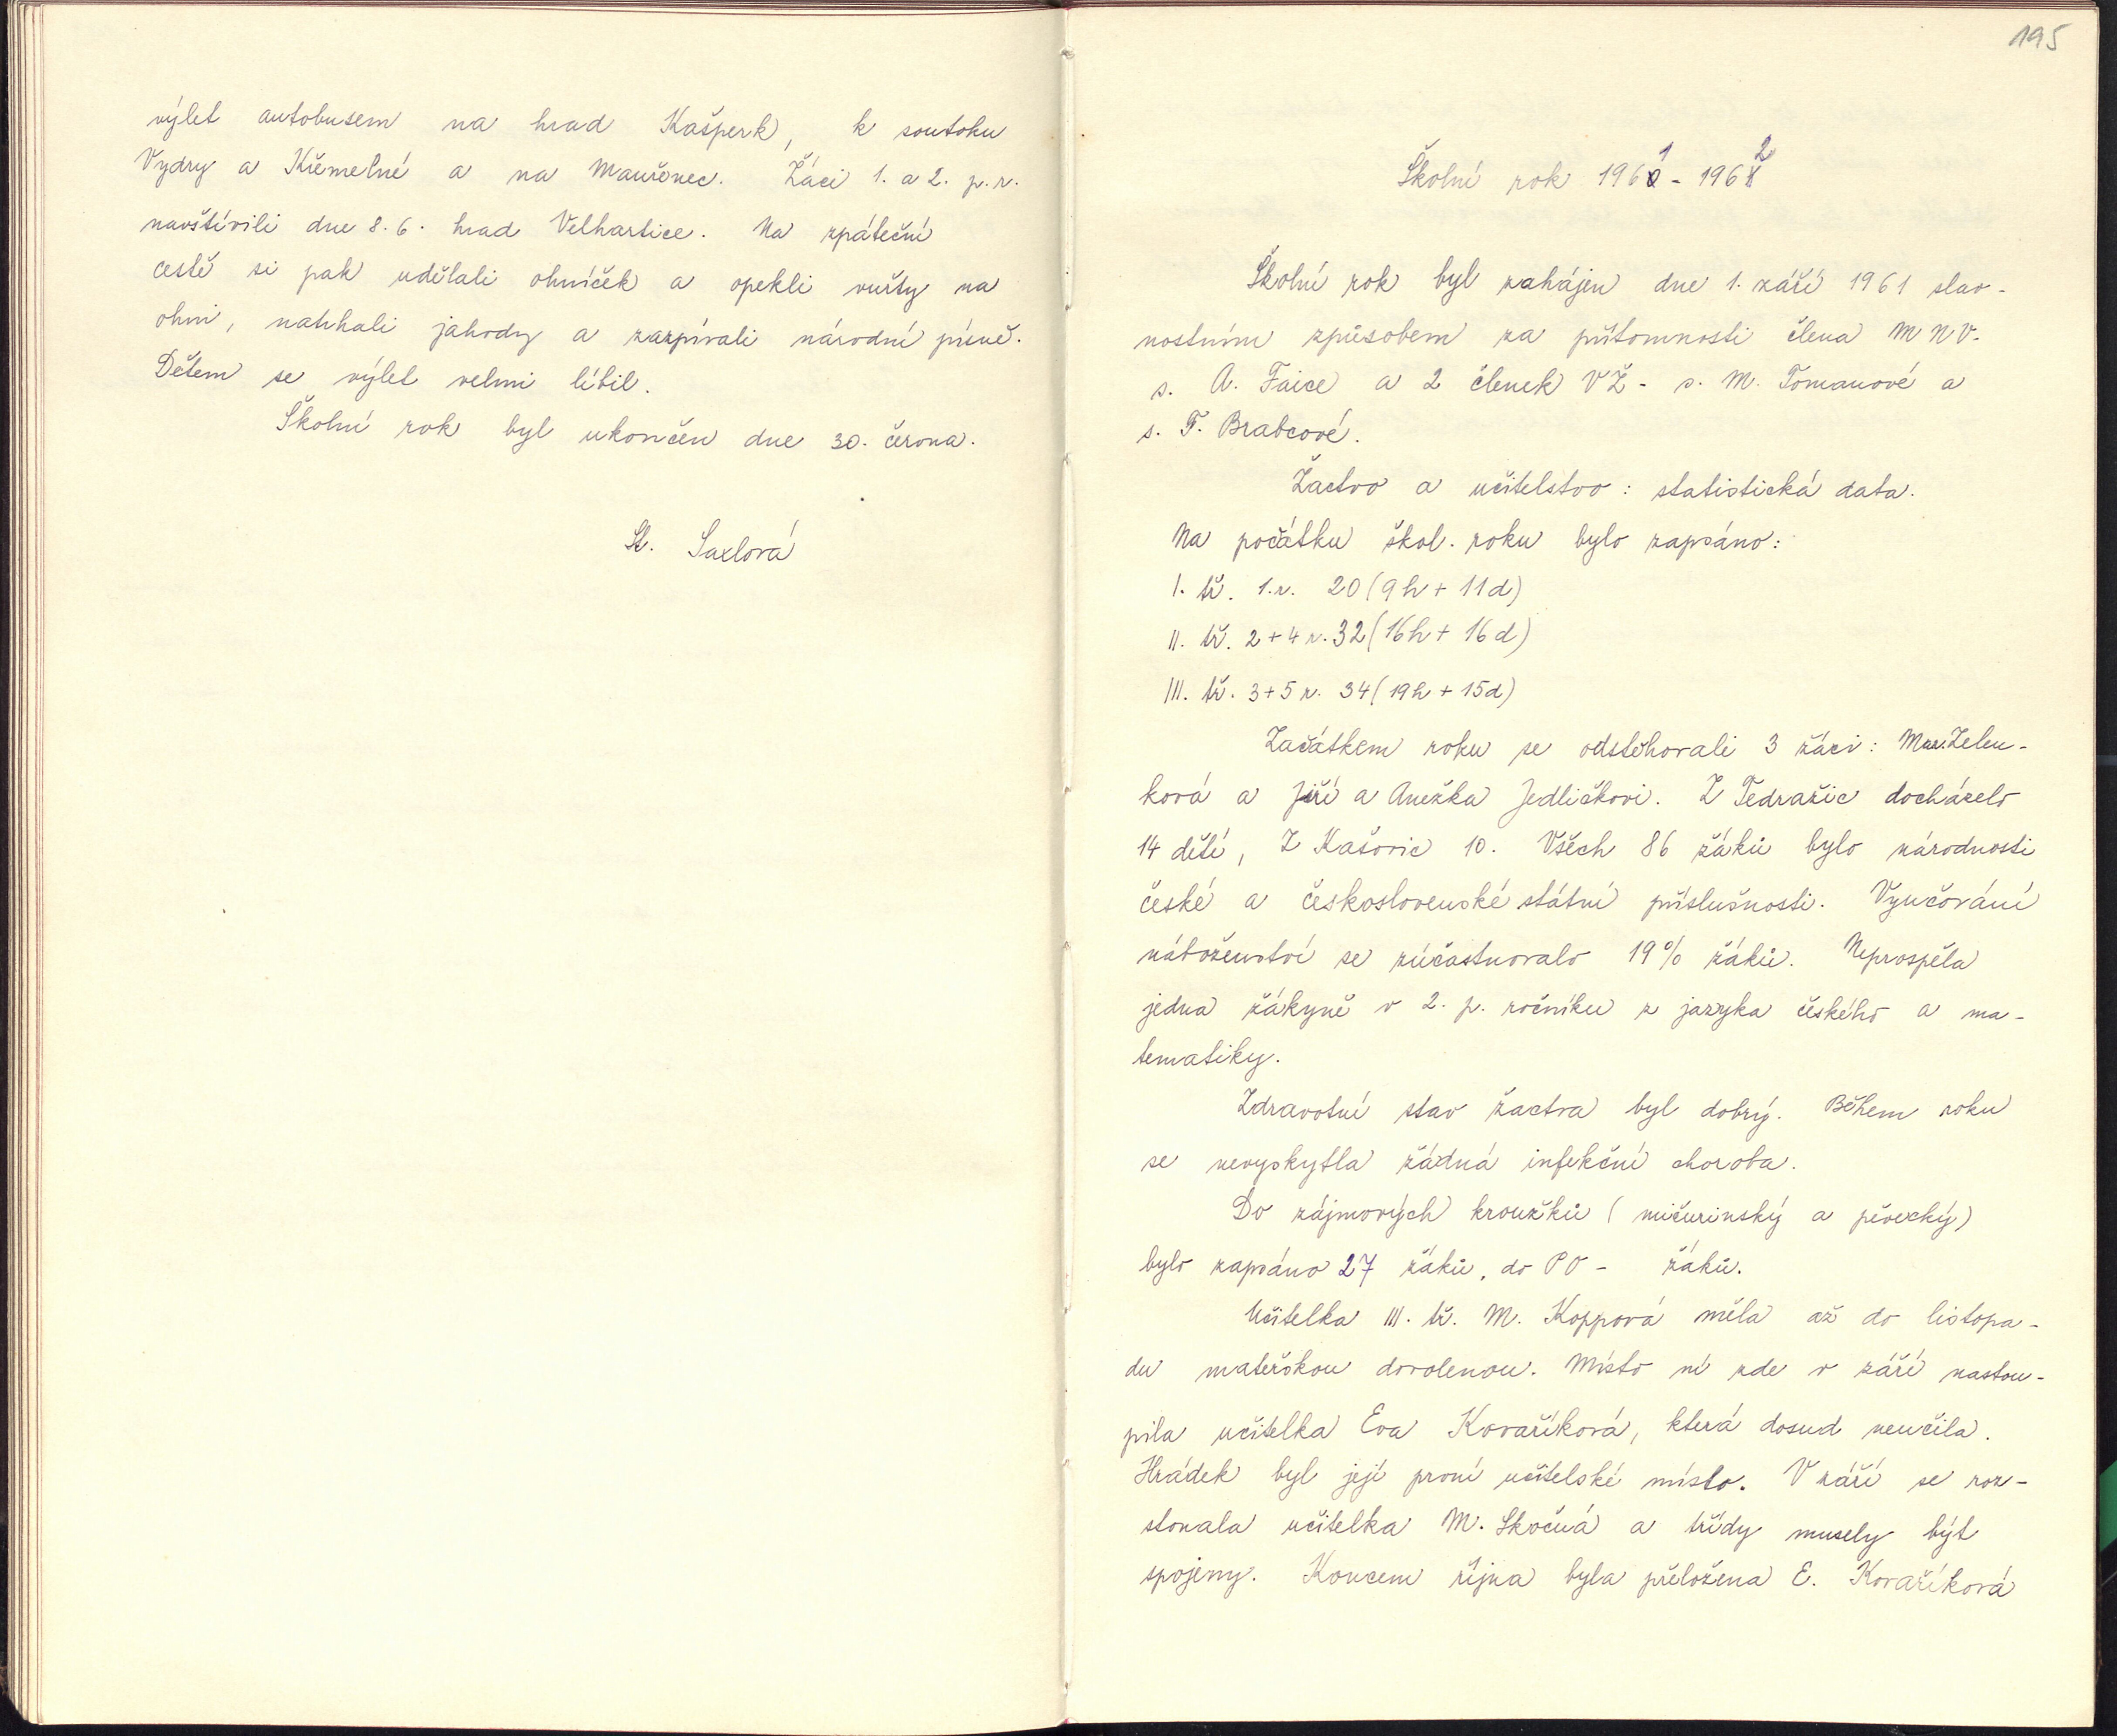 výlet autobusem na hrad Kašperk, k soutoku
Vydry a Křemelné a na Mauřenec. Žáci 1. a 2. p. r.
navštívili dne 8. 6. hrad Velhartice. Na zpáteční
cestě si pak udělali ohníček a opekli vuřty na
ohni, natrhali jahody a zazpívali národní písně.
Dětem se výlet velmi líbil.
Školní rok byl ukončen dne 30. června.
St. Saxlová
195
Školní rok 1961 - 1962
Školní rok byl zahájen dne 1. září 1961 slav-
nostním způsobem za přítomnosti člena MNV.
s. A. Faice a 2 členek VŽ - s. M. Tomanové a
s. F. Brabcové.
Žactvo a učitelstvo: statistická data.
Na počátku škol. roku bylo zapsáno:
I. tř. 1. r. 20 (9h + 11d)
II. tř. 2 + 4 r. 32 (16h + 16d)
III. tř. 3 + 5 r. 34 (19h + 15d)
Začátkem roku se odstěhovali 3 žáci: Mar. Zelen-
ková a Jiří a Anežka Jedličkovi. Z Tedražic docházelo
14 dětí, Z Kašovic 10. Všech 86 žáků bylo národnosti
české a československé státní příslušnosti. Vyučování
náboženství se zúčastnovalo 19% žáků. Neprospěla
jedna žákyně v 2. p. ročníku z jazyka českého a ma-
tematiky.
Zdravotní stav žactva byl dobrý. Během roku
se nevyskytla žádná infekční choroba.
Do zájmových kroužků (mičurinský a pěvecký)
bylo zapsáno 27 žáků, do PO - žáků.
Učitelka III. tř. M. Koppová měla až do listopa-
du mateřskou dovolenou. Místo ní zde v září nastou-
pila učitelka Eva Kovaříková, která dosud neučila.
Hrádek byl její první učitelské místo. V září se roz-
stonala učitelka M. Skočná a třídy musely být
spojeny. Koncem října byla přeložena E. Kovaříková